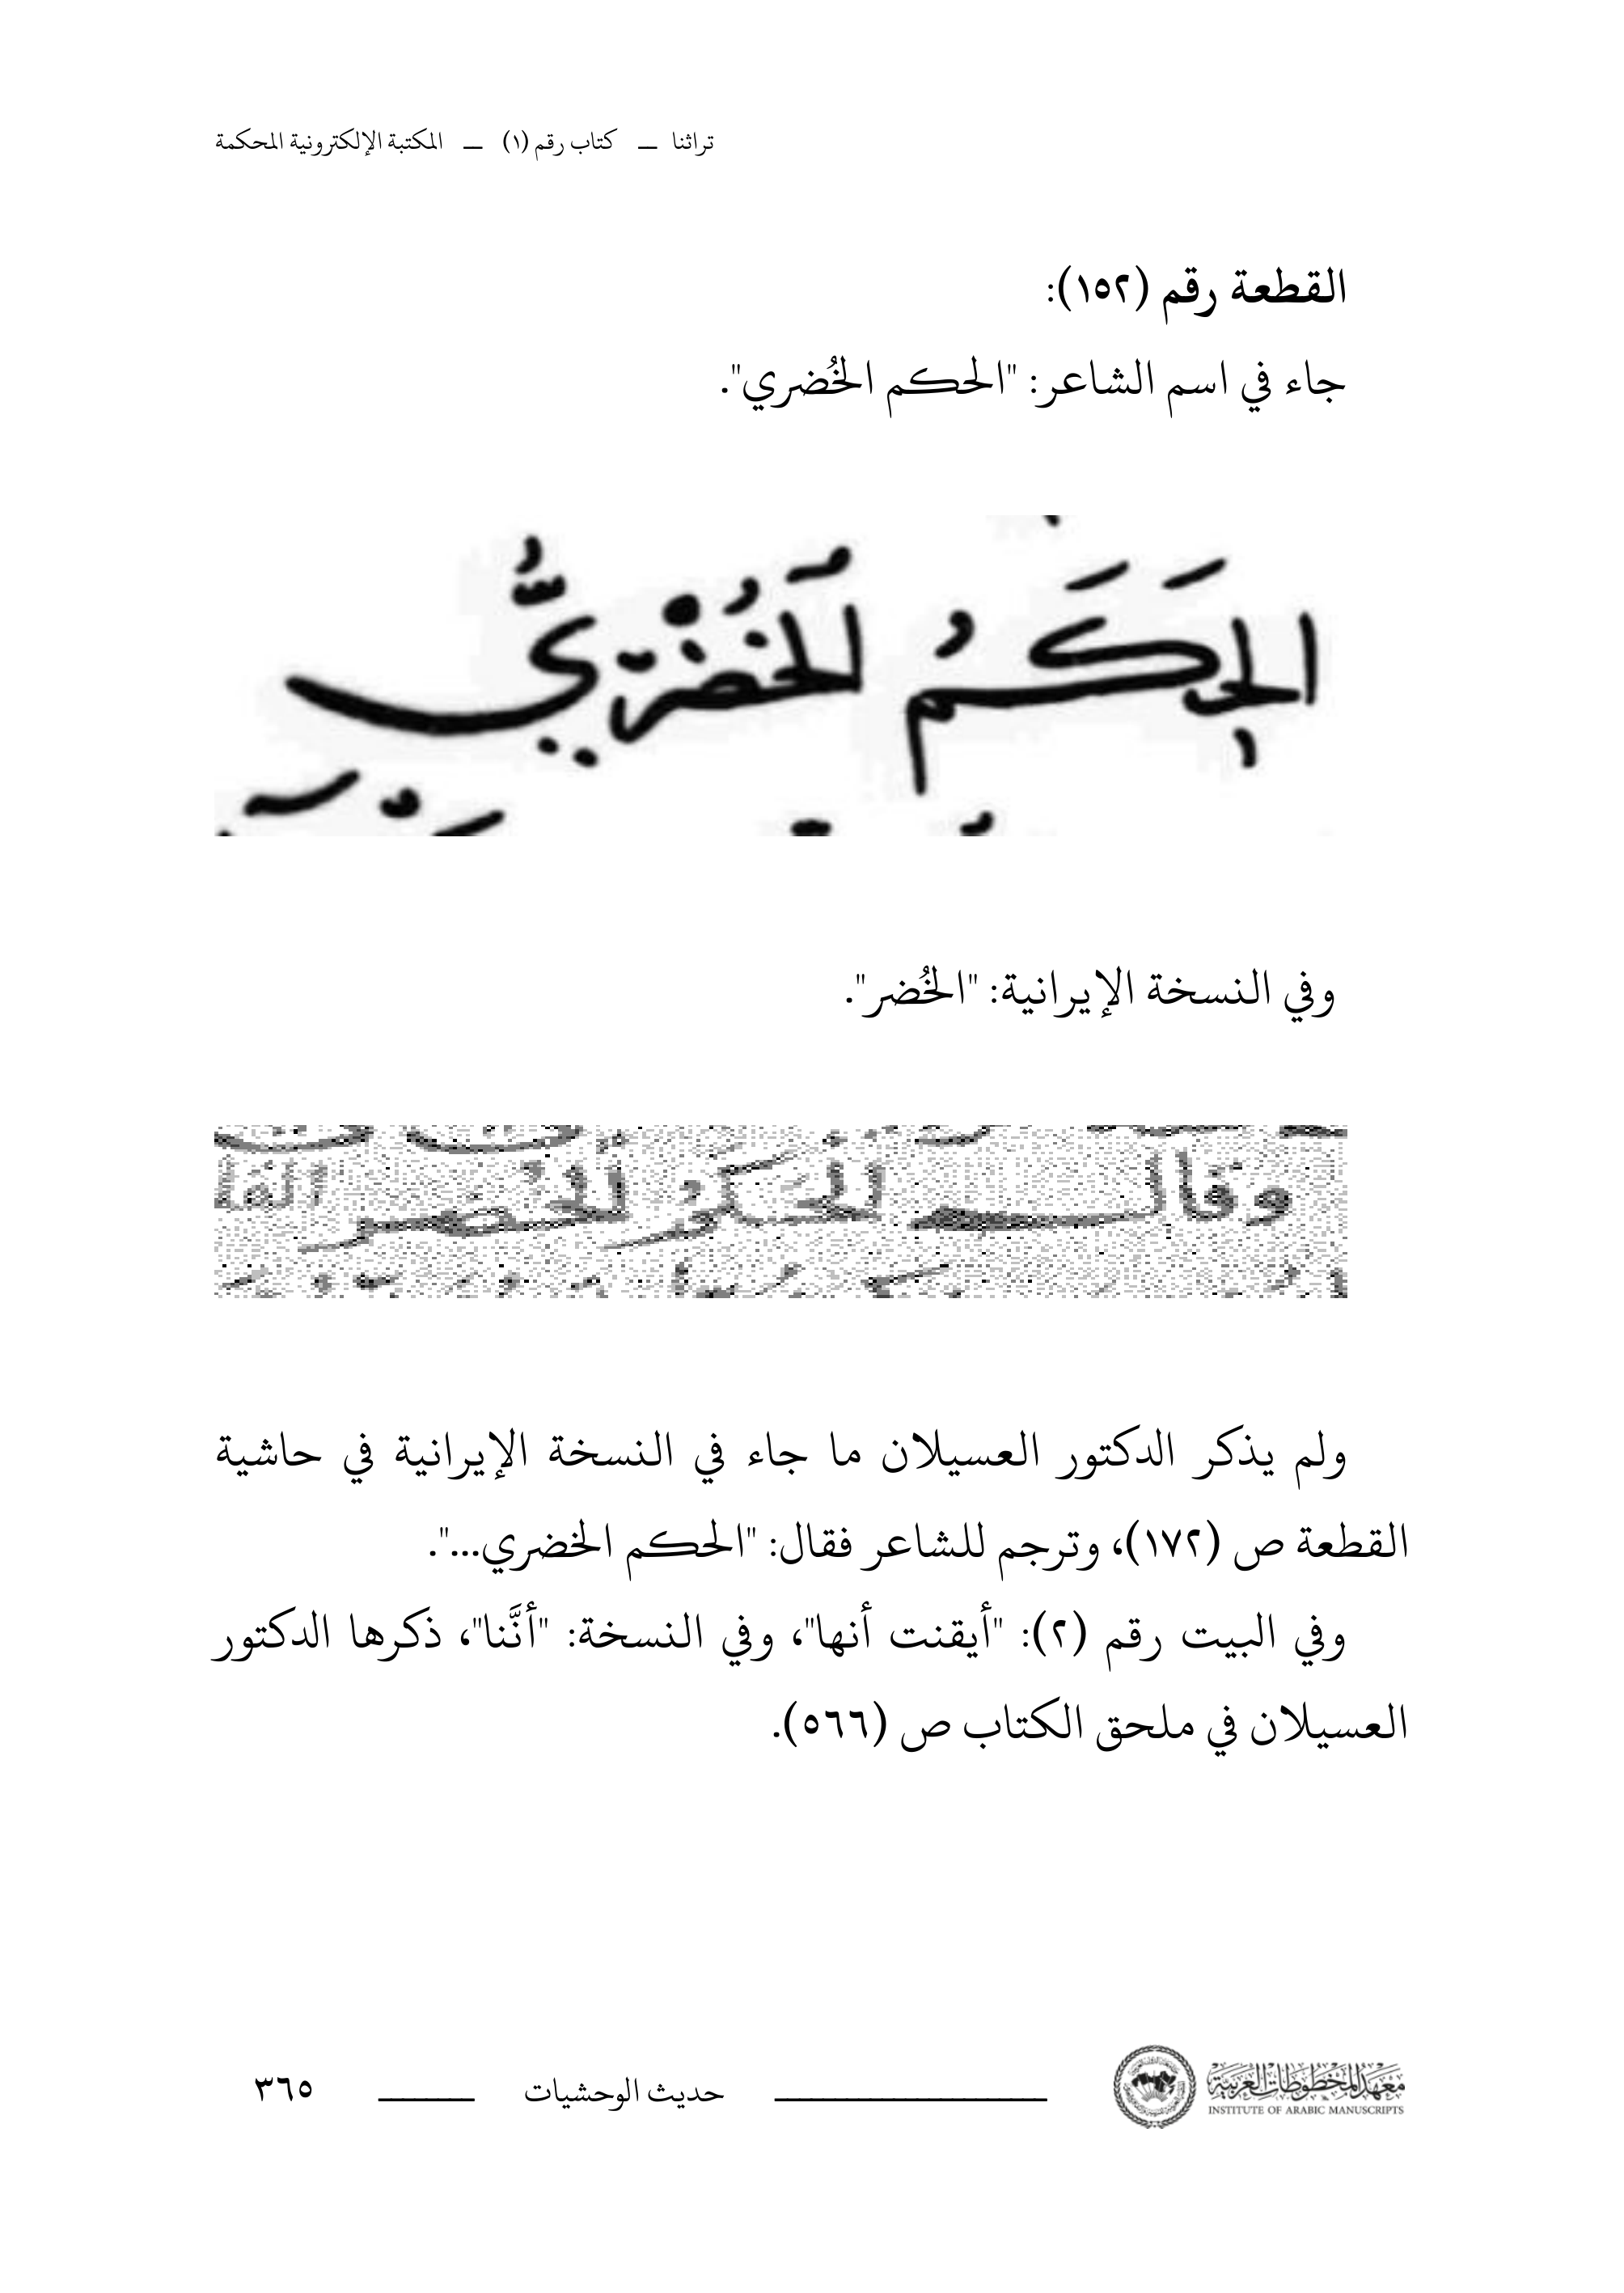 تراثنا — كتاب رقم (١) — المكتبة الإلكترونية المحكمة
القطعة رقم (١٥٢):
جاء في اسم الشاعر: "الحكم الخُضري".
الحَكَمُ الخُضْرِيُّ
وفي النسخة الإيرانية: "الخُضر".
وقال الحكم الخضر
ولم يذكر الدكتور العسيلان ما جاء في النسخة الإيرانية في حاشية
القطعة ص (١٧٢)، وترجم للشاعر فقال: "الحكم الخضري...".
وفي البيت رقم (٢): "أيقنت أنها"، وفي النسخة: "أنَّنا"، ذكرها الدكتور
العسيلان في ملحق الكتاب ص (٥٦٦).
معهد المخطوطات العربية
INSTITUTE OF ARABIC MANUSCRIPTS
حديث الوحشيات
٣٦٥